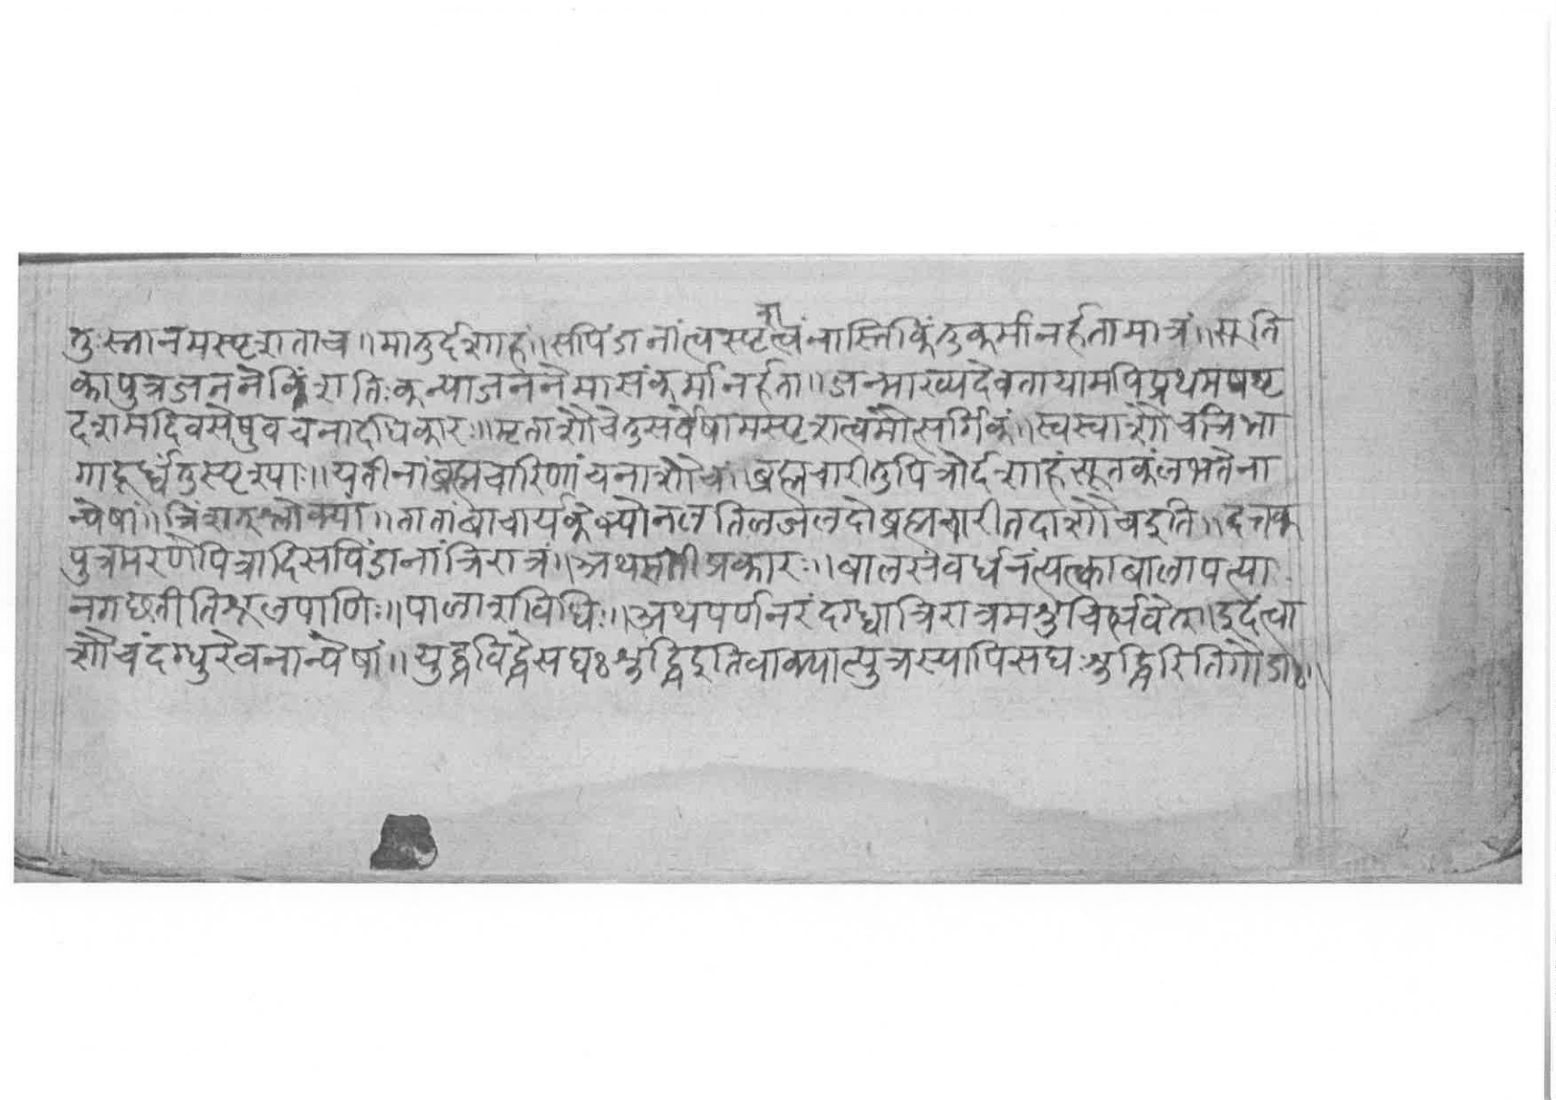 तुःस्नानमस्पृशताच॥मातुर्दशाहं॥सपिंडानांत्वस्पृशत्वंनास्तिकिंतुकर्मानर्हतामात्रं॥सूति
कापुत्रजननेविंशतिःकन्याजननेमासंकर्मानर्हता॥जन्माख्यदेवतायामपिप्रथमषष्ट
दशमदिवसेषुवचनादधिकारः॥मृताशौचेतुसर्वेषामस्पृशत्वमौत्सर्गिकं॥स्वस्वाशौचत्रिभा
गादूर्ध्वंतुस्पृश्याः॥यतीनांब्रह्मचारिणांचनाशौचं॥ब्रह्मचारीतुपित्रोर्दशाहंसूतकंलभतेना
न्येषां॥त्रिंशत्श्लोक्यां॥तातांबाचार्यकेभ्योनलतिलजलदोब्रह्मचारीतदाशौचइति॥दत्तक
पुत्रमरणेपित्रादिसपिंडानांत्रिरात्रं॥अथसतीप्रकारः॥बालसंवर्धनंत्यक्त्वाबालापत्या
नगछतीतिशूलपाणिः॥पालाशविधिः॥अथपर्णनरंदग्ध्वात्रिरात्रमशुचिर्भवेत्॥इदंत्वा
शौचंदग्धुरेवनान्येषां॥युद्धविद्धेसघःशुद्धिइतिवाक्यात्पुत्रस्यापिसघःशुद्धिरितिगौडाः॥